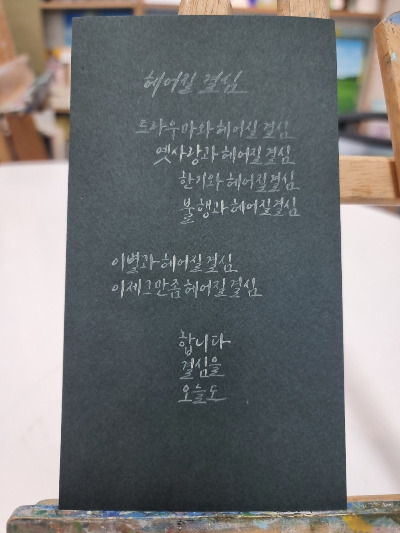 헤어질 결심
트라우마와 헤어질 결심
옛사랑과 헤어질 결심
한기와 헤어질 결심
불행과 헤어질 결심
이별과 헤어질 결심
이제그만좀 헤어질 결심
합니다
결심을
오늘도